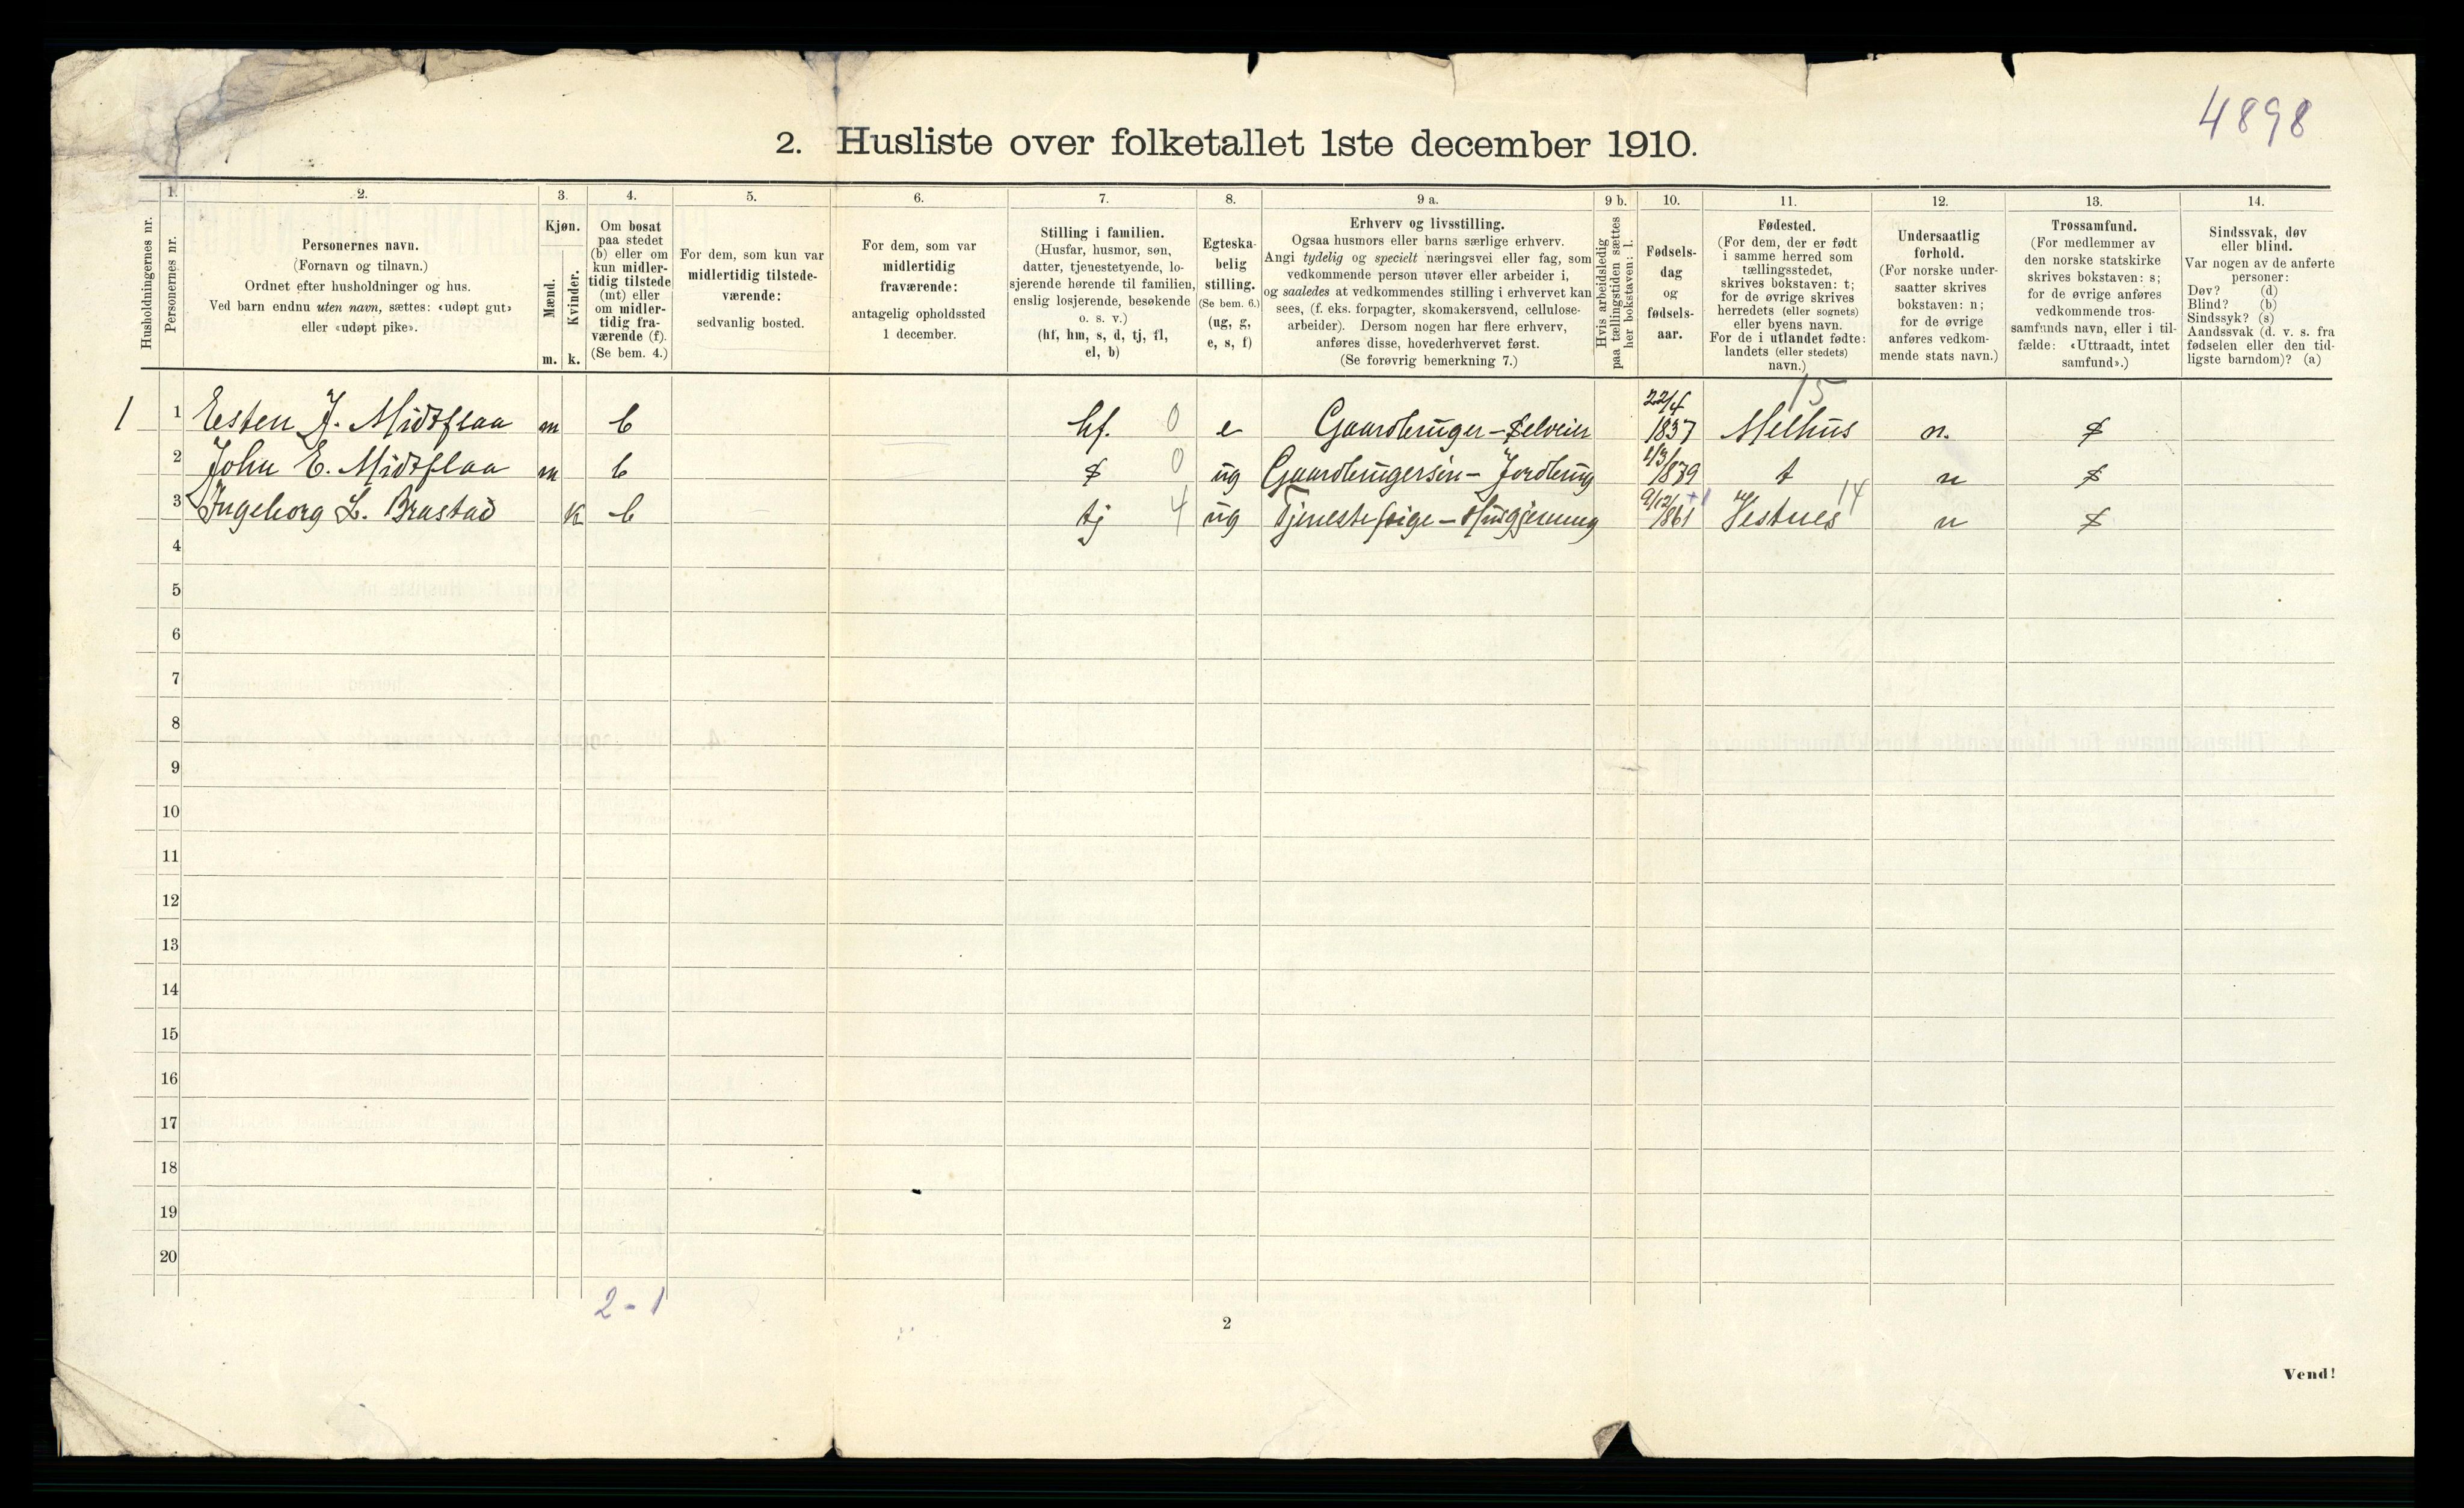 4898
2. Husliste over folketallet 1ste december 1910.
Husholdningernes nr.
1. Personernes nr.
2. Personernes navn.
(Fornavn og tilnavn.)
Ordnet efter husholdninger og hus.
Ved barn endnu uten navn, sættes: «udøpt gut»
eller «udøpt pike».
3. Kjøn.
Mænd. m.
Kvinder. k.
4. Om bosat
paa stedet
(b) eller om
kun midler-
tidig tilstede
(mt) eller
om midler-
tidig fra-
værende (f).
(Se bem. 4.)
5. For dem, som kun var
midlertidig tilstede-
værende:
sedvanlig bosted.
6. For dem, som var
midlertidig
fraværende:
antagelig opholdssted
1 december.
7. Stilling i familien.
(Husfar, husmor, søn,
datter, tjenestetyende, lo-
sjerende hørende til familien,
enslig losjerende, besøkende
o. s. v.)
(hf, hm, s, d, tj, fl,
el, b)
8. Egteska-
belig
stilling.
(Se bem. 6.)
(ug, g,
e, s, f)
9 a. Erhverv og livsstilling.
Ogsaa husmors eller barns særlige erhverv.
Angi tydelig og specielt næringsvei eller fag, som
vedkommende person utøver eller arbeider i,
og saaledes at vedkommendes stilling i erhvervet kan
sees, (f. eks. forpagter, skomakersvend, cellulose-
arbeider). Dersom nogen har flere erhverv,
anføres disse, hovederhvervet først.
(Se forøvrig bemerkning 7.)
9 b. Hvis arbeidsledig
paa tællingstiden sættes
her bokstaven: l.
10. Fødsels-
dag
og
fødsels-
aar.
11. Fødested.
(For dem, der er født
i samme herred som
tællingsstedet,
skrives bokstaven: t;
for de øvrige skrives
herredets (eller sognets)
eller byens navn.
For de i utlandet fødte:
landets (eller stedets)
navn.)
12. Undersaatlig
forhold.
(For norske under-
saatter skrives
bokstaven: n;
for de øvrige
anføres vedkom-
mende stats navn.)
13. Trossamfund.
(For medlemmer av
den norske statskirke
skrives bokstaven: s;
for de øvrige anføres
vedkommende tros-
samfunds navn, eller i til-
fælde: «Uttraadt, intet
samfund».)
14. Sindssvak, døv
eller blind.
Var nogen av de anførte
personer:
Døv? (d)
Blind? (b)
Sindssyk? (s)
Aandssvak (d. v. s. fra
fødselen eller den tid-
ligste barndom)? (a)
15
1 1 Esten J. Midtflaa m b hf. 0 e Gaardbruger - Selveier 22/4 1837 Melhus n. s
2 John E. Midtflaa m b s 0 ug Gaardbrugersøn - Jordbrug 1879 t n s
3 Ingeborg L. Brastad k b tj 4 ug Tjenestepige - Husgjerning 9/12 1861 Vestnes 14 n s
4
5
6
7
8
9
10
11
12
13
14
15
16
17
18
19
20
2 - 1
2
Vend!